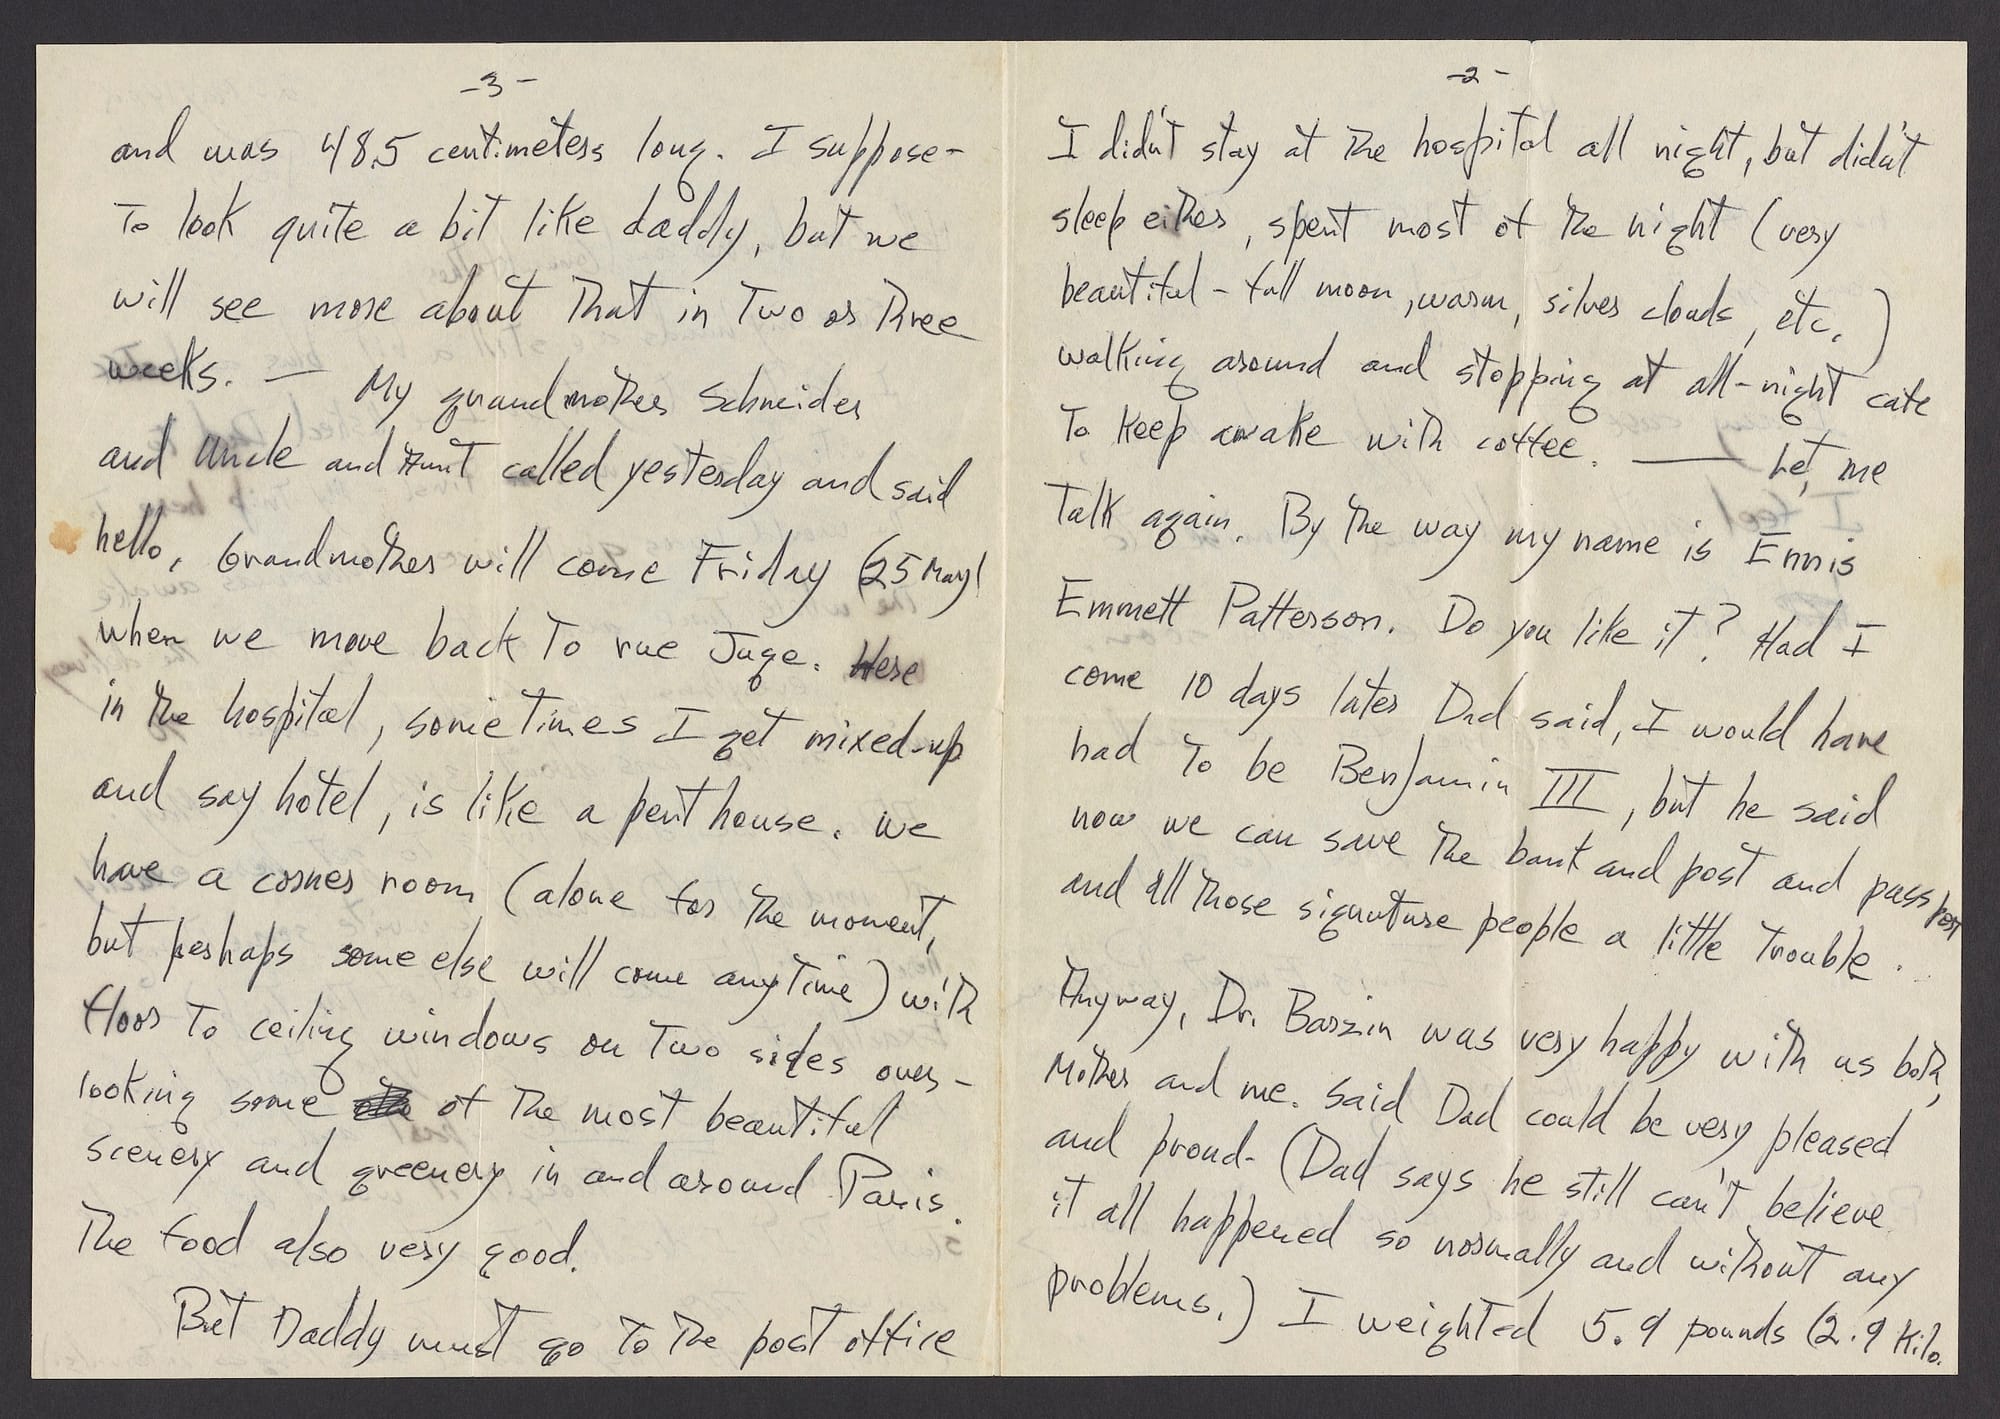 -2-
I didn't stay at the hospital all night, but didn't
sleep either, spent most of the night (very
beautiful - full moon, warm, silver clouds, etc.)
walking around and stopping at all-night cafe
to keep awake with coffee. — Let me
talk again. By the way my name is Ennis
Emmett Patterson. Do you like it? Had I
come 10 days later Dad said, I would have
had to be Benjamin III, but he said
now we can save the bank and post and passport
and all those signature people a little trouble.
Anyway, Dr. Barzin was very happy with us both,
Mother and me. Said Dad could be very pleased
and proud. (Dad says he still can't believe
it all happened so normally and without any
problems.) I weighted 5.9 pounds (2.9 Kilo.
-3-
and was 48.5 centimeters long. I suppose-
to look quite a bit like daddy, but we
will see more about that in two or three
weeks. — My grandmother Schneider
and Uncle and Aunt called yesterday and said
hello. Grandmother will come Friday (25 May)
when we move back to rue Juge. Here
in the hospital, sometimes I get mixed-up
and say hotel, is like a penthouse. We
have a corner room (alone for the moment,
but perhaps some else will come anytime) with
floor to ceiling windows on two sides over-
looking some of the most beautiful
scenery and greenery in and around Paris.
The food also very good.
But Daddy must go to the post office